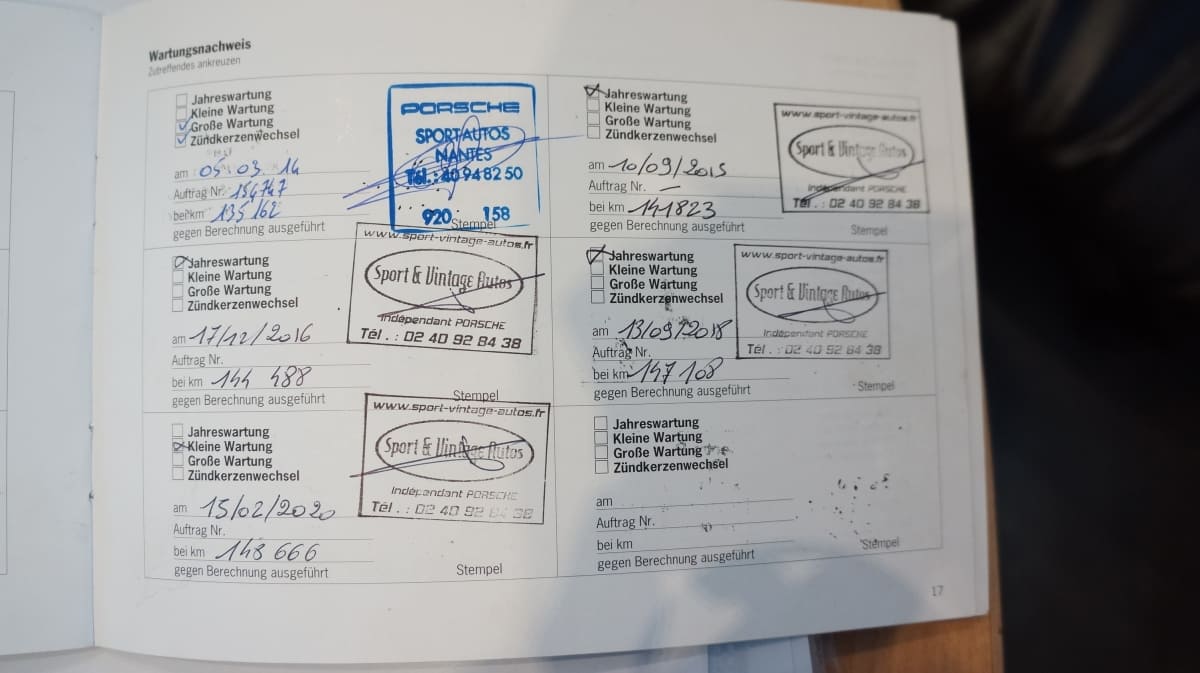 Wartungsnachweis
Zutreffendes ankreuzen
Jahreswartung
Kleine Wartung
Große Wartung
Zündkerzenwechsel
am 05 03 14
Auftrag Nr. 154747
bei km 135 162
gegen Berechnung ausgeführt
PORSCHE
SPORT AUTOS
NANTES
Tél. : 40 94 82 50
920 158
Stempel
Jahreswartung
Kleine Wartung
Große Wartung
Zündkerzenwechsel
am 10/09/2015
Auftrag Nr. —
bei km 141823
gegen Berechnung ausgeführt
www.sport-vintage-autos.fr
Sport & Vintage Autos
Indépendant PORSCHE
Tél. : 02 40 92 84 38
Stempel
Jahreswartung
Kleine Wartung
Große Wartung
Zündkerzenwechsel
am 17/12/2016
Auftrag Nr.
bei km 144 488
gegen Berechnung ausgeführt
www.sport-vintage-autos.fr
Sport & Vintage Autos
Indépendant PORSCHE
Tél. : 02 40 92 84 38
Stempel
Jahreswartung
Kleine Wartung
Große Wartung
Zündkerzenwechsel
am 13/09/2018
Auftrag Nr.
bei km 147 108
gegen Berechnung ausgeführt
www.sport-vintage-autos.fr
Sport & Vintage Autos
Indépendant PORSCHE
Tél. : 02 40 92 84 38
Stempel
Jahreswartung
Kleine Wartung
Große Wartung
Zündkerzenwechsel
am 15/02/2020
Auftrag Nr.
bei km 148 666
gegen Berechnung ausgeführt
www.sport-vintage-autos.fr
Sport & Vintage Autos
Indépendant PORSCHE
Tél. : 02 40 92 84 38
Stempel
Jahreswartung
Kleine Wartung
Große Wartung
Zündkerzenwechsel
am
Auftrag Nr.
bei km
gegen Berechnung ausgeführt
Stempel
17